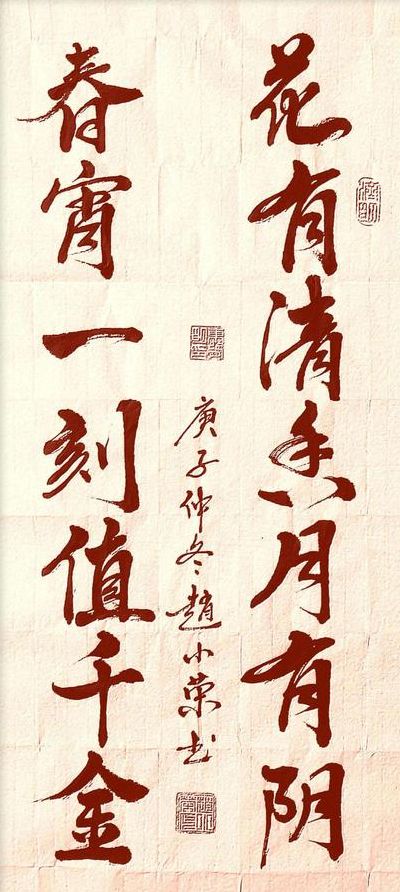 花有清香月有阴
春宵一刻值千金
庚子仲冬趙小荣书